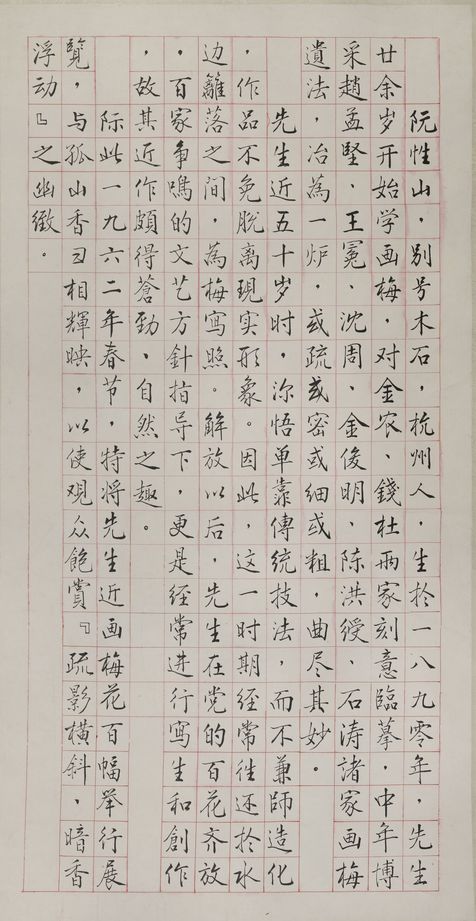 阮性山，别号木石，杭州人，生於一八九零年，先生
廿余岁开始学画梅，对金农、錢杜两家刻意臨摹，中年博
采趙孟堅、王冕、沈周、金俊明、陈洪綬、石涛諸家画梅
遺法，冶為一炉，或疏或密或细或粗，曲尽其妙。
先生近五十岁时，深悟单靠傳统技法，而不兼師造化
，作品不免脱离现实形象。因此，这一时期经常往还於水
边籬落之间，為梅寫照。解放以后，先生在党的百花齐放
，百家争鳴的文艺方針指导下，更是经常进行寫生和創作
，故其近作頗得蒼勁、自然之趣。
际此一九六二年春节，特将先生近画梅花百幅举行展
覽，与孤山香雪相輝映，以使观众飽賞『疏影橫斜，暗香
浮动』之幽緻。